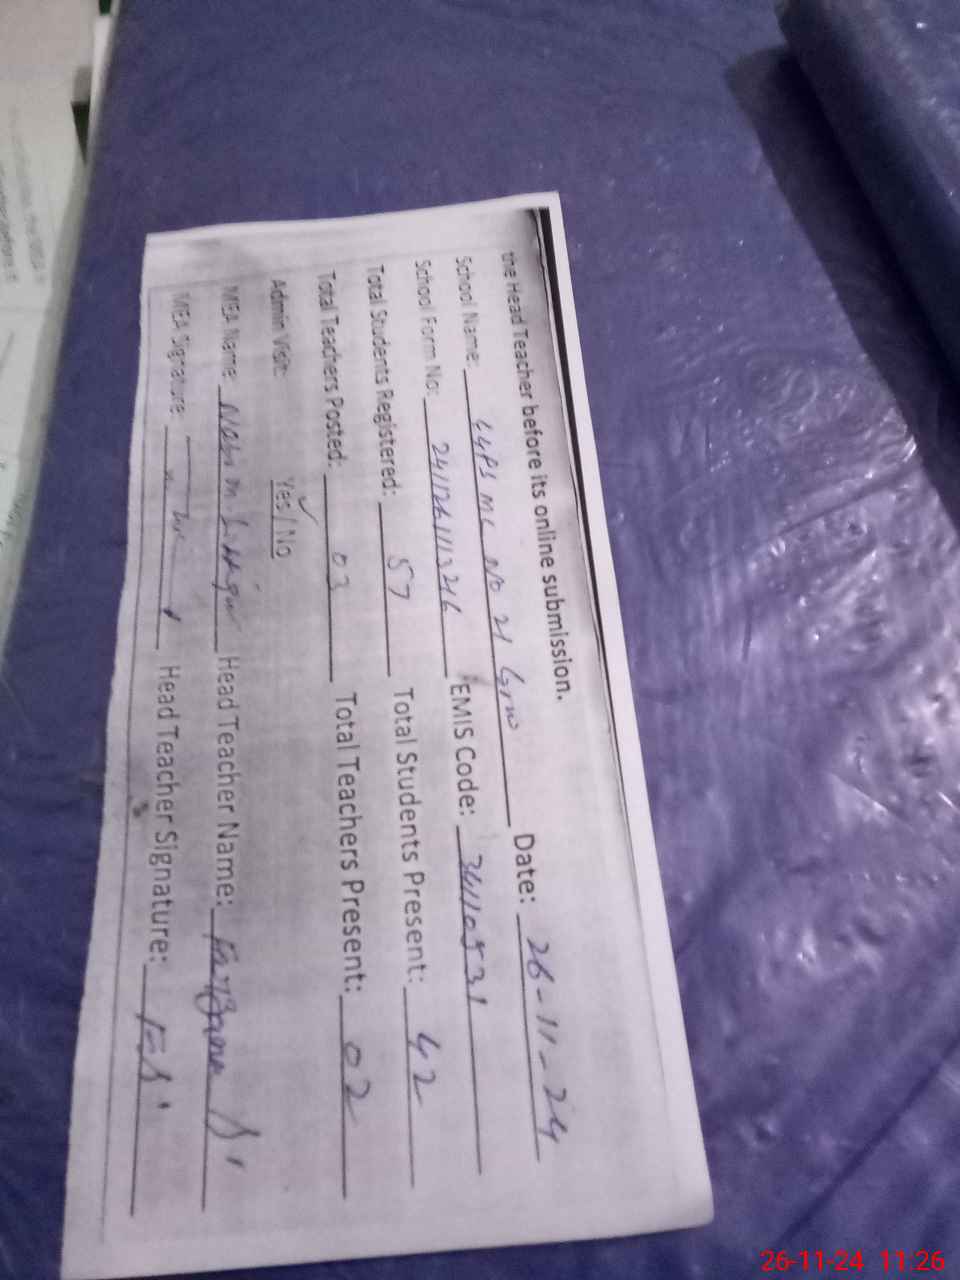 the Head Teacher before its online submission.
School Name: GGPS MC NO 21 Grw Date: 26-11-24
School Form No: 2411261113246 EMIS Code: 34110531
Total Students Registered: 57 Total Students Present: 42
Total Teachers Posted: 03 Total Teachers Present: 02
Admin Visit: Yes / No
MEA Name: Head Teacher Name:
MEA Signature: Head Teacher Signature:
26-11-24 11:26